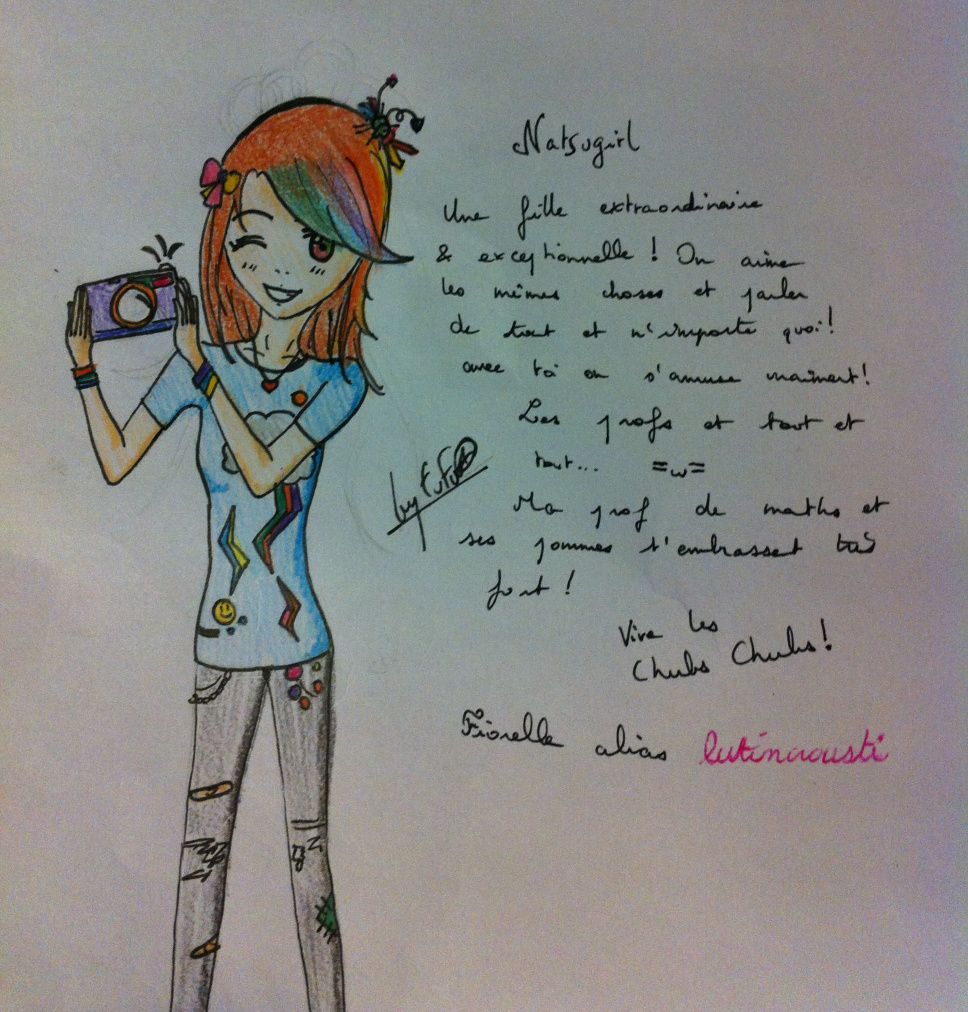 Natsugirl
Une fille extraordinaire
& exceptionnelle ! On aime
les mêmes choses et parler
de tout et n'importe quoi !
avec toi on s'amuse vraiment !
Les profs et tout et
tout... =w=
Ma prof de maths et
ses pommes t'embrassent très
fort !
Vive les
Chubs Chubs !
by FuFu
Fiorelle alias lutinaousti